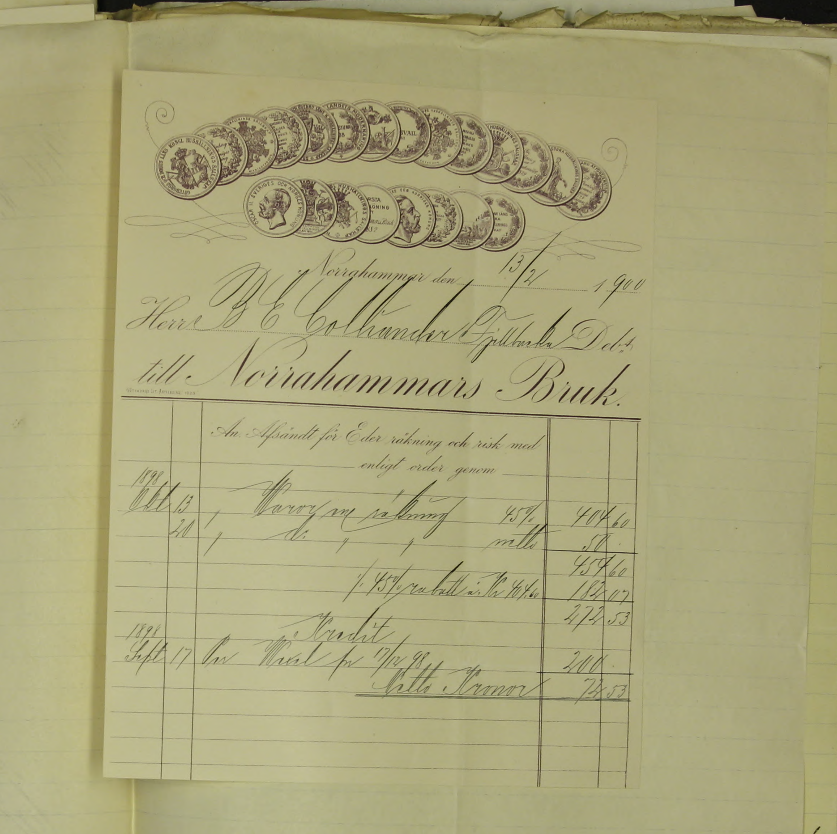 Norrahammar den 13/2 1900
Herr B E Collianders Fjellbacka Debet
till Norrahammars Bruk.
An Afsändt för Eder räkning och risk med
enligt order genom
1898
Okt 13 " Varor en räkning 45% 404 60
20 " do " " netto 50 -
454 60
% 45% rabatt å Kr 404.60 182 07
272 53
Kredit
1898
Sept 17 Per Vexel pr 17/12 98 200 -
Netto Kronor 72 53